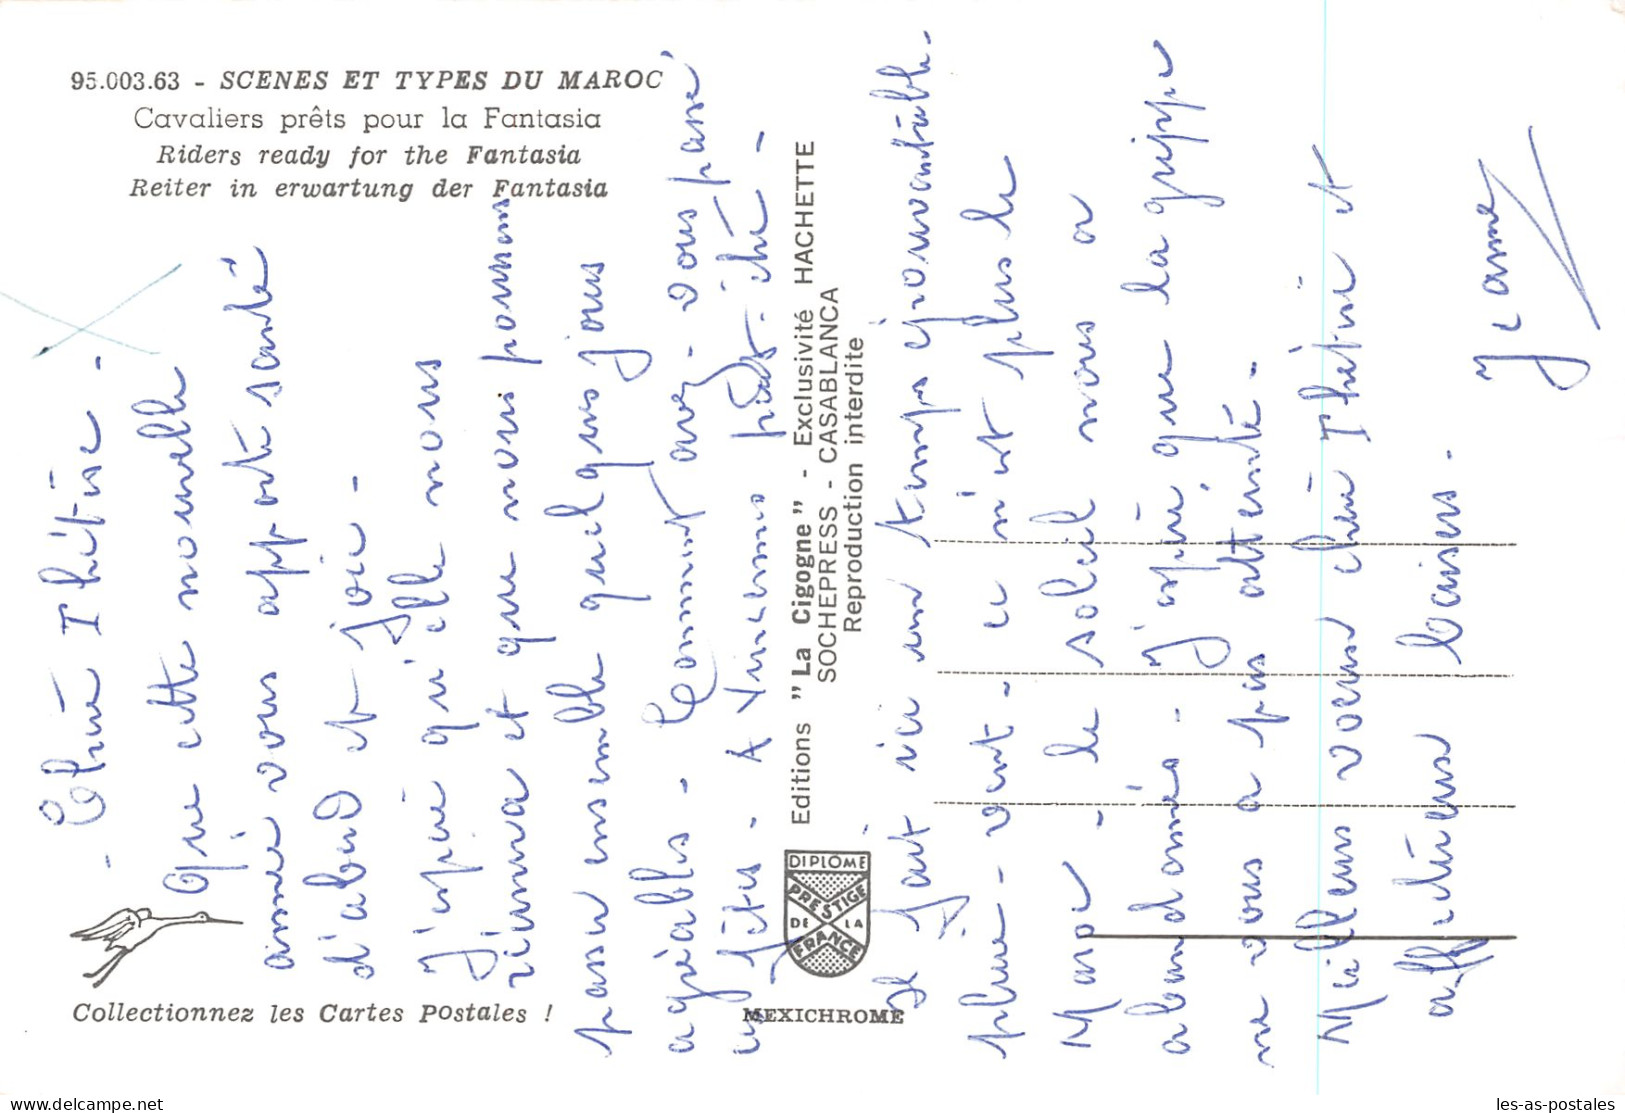 95.003.63 - SCENES ET TYPES DU MAROC
Cavaliers prêts pour la Fantasia
Riders ready for the Fantasia
Reiter in erwartung der Fantasia
- Chère Thérèse -
Que cette nouvelle
année vous apporte santé
d'abord et joie -
J'espère qu'elle nous
réunira et que nous pourrons
passer ensemble quelques jours
agréables - Comment avez-vous passé
ces fêtes - A peut-être -
Il fait ici un temps épouvantable -
pluie - vent - ce n'est plus le
Maroc - le soleil nous a
abandonnés - J'espère que la grippe
ne vous a pas atteinte -
Meilleurs voeux chère Thérèse et
affectueux baisers -
Jeanne
Editions "La Cigogne" - Exclusivité HACHETTE
SOCHEPRESS - CASABLANCA
Reproduction interdite
DIPLOME
PRESTIGE
DE LA
FRANCE
MEXICHROME
Collectionnez les Cartes Postales !
delcampe.net
les-as-postales